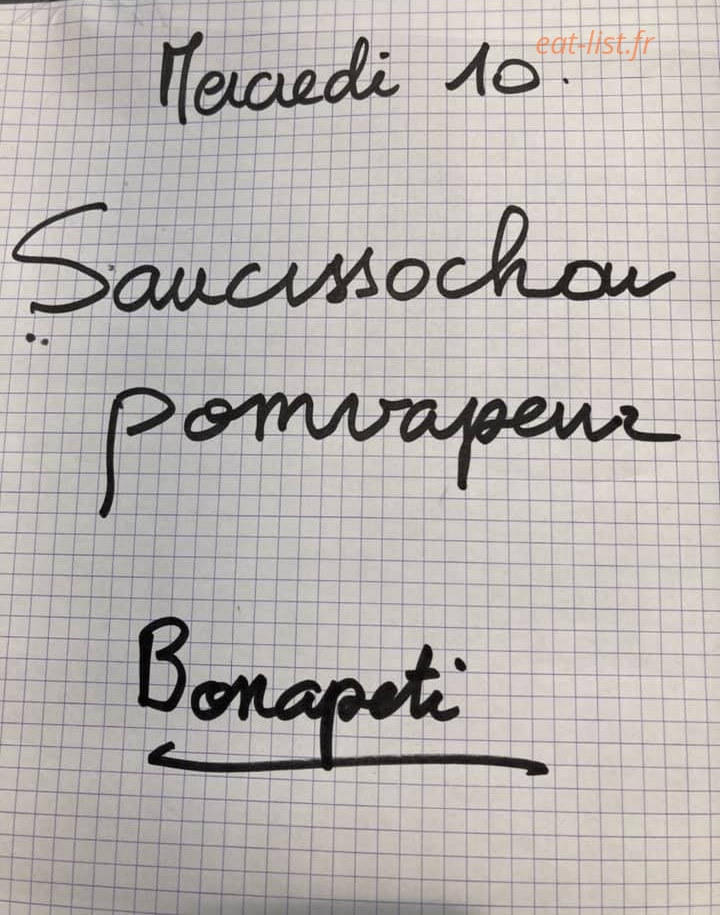 eat-list.fr
Mercredi 10.
Saucissochou
pomvapeur
Bonapeti